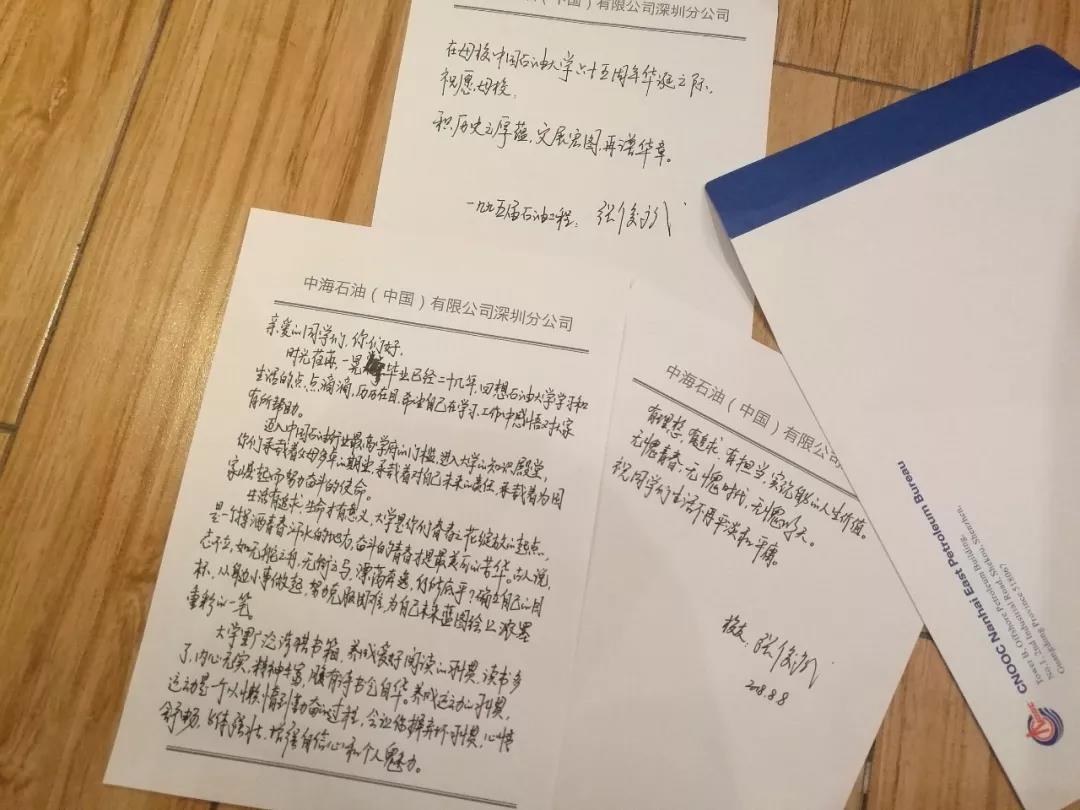 (中国)有限公司深圳分公司
在母校中国石油大学六十五周年华诞之际,
祝愿母校,
积历史之厚蕴,交展宏图,再谱华章。
一九九五届石油工程:张俊斌
中海石油(中国)有限公司深圳分公司
亲爱的同学们,你们好,
时光荏苒,一晃毕业已经二十几年,回想石油大学学习和
生活的点点滴滴,历历在目,希望自己在学习、工作中感悟对大家
有所帮助。
进入中国石油行业最高学府的门槛,进入大学的知识殿堂,
你们承载着父母多年的期望,承载着对自己未来的责任,承载着为国
家崛起而努力奋斗的使命。
生活有追求,生命才有意义,大学是你们青春之花绽放的起点,
是一个挥洒青春汗水的地方,奋斗的青春才是最美丽的芳华。古人说,
志不立,如无舵之舟,无衔之马,漂荡奔逸,何所底乎?确立自己的目
标,从身边小事做起,努力克服困难,为自己未来蓝图绘上浓墨
重彩的一笔。
大学里广泛涉猎书籍,养成爱好阅读的习惯,读书多
了,内心充实,精神丰富,腹有诗书气自华。养成运动的习惯,
运动是一个从懒惰到勤奋的过程,会让你摒弃坏习惯,心情
舒畅,身体强壮,增强自信心和个人魅力。
中海石油(中国)有限公
有理想,有追求,有担当,实现自己的人生价值。
无愧青春,无愧时代,无愧明天。
祝同学们生活不再平淡和平庸。
校友:张俊斌
2018.8.8
CNOOC Nanhai East Petroleum Bureau
Tower B, Offshore Petroleum Building,
No.1, 2nd Industrial Road, Shekou, Shenzhen,
Guangdong Province 518067
CNOOC